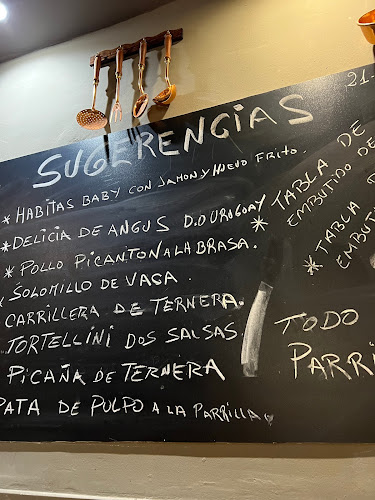 SUGERENCIAS
* HABITAS BABY CON JAMON Y HUEVO FRITO.
* DELICIA DE ANGUS D.O URUGUAY
* POLLO PICANTON A LA BRASA.
SOLOMILLO DE VACA
CARRILLERA DE TERNERA.
TORTELLINI DOS SALSAS.
PICAÑA DE TERNERA
PATA DE PULPO A LA PARRILLA
21-
* TABLA DE
EMBUTIDO DE
* TABLA D
EMBUTID
TODO
PARRI